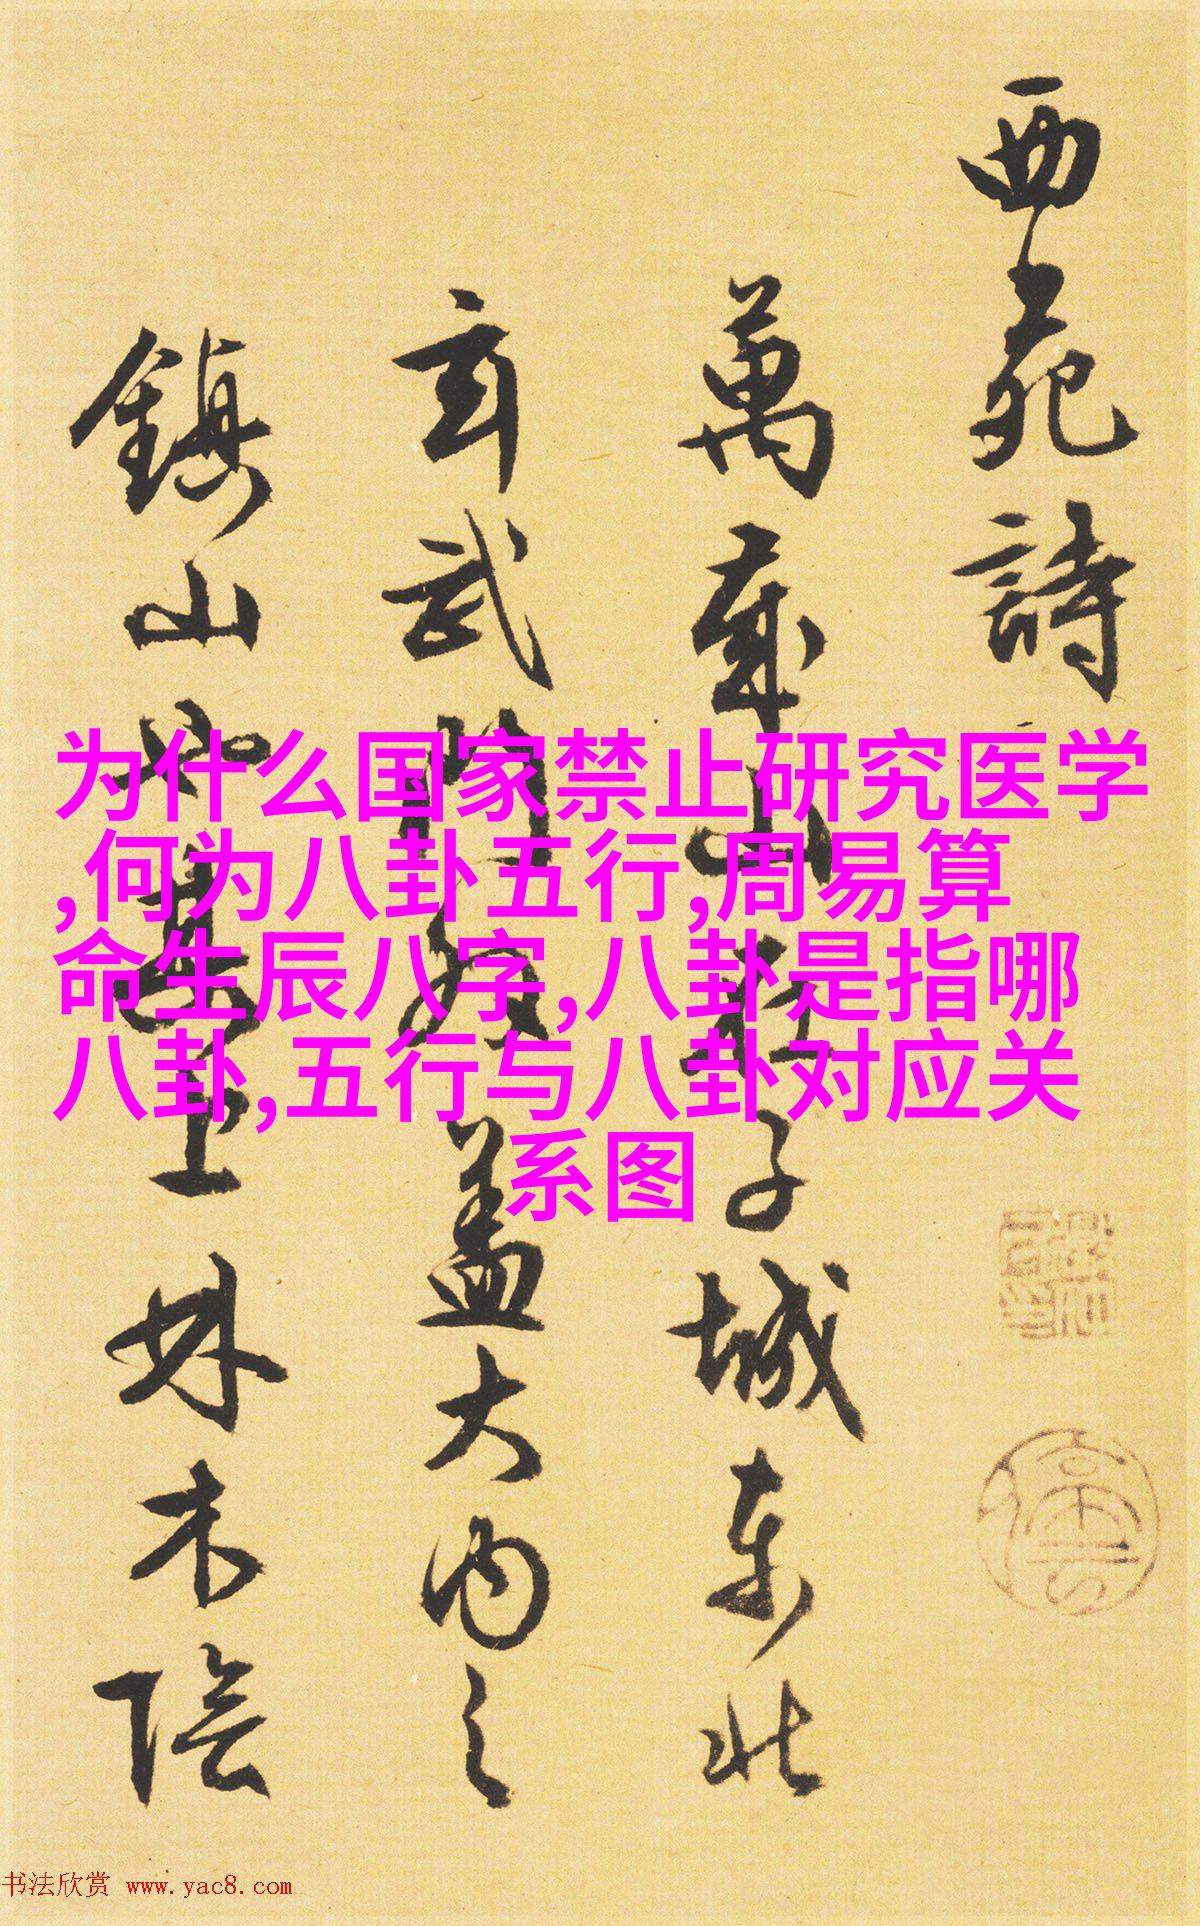 西苑詩
萬歲山在子城東北
玄武門外蓋大內之
鎮山也其上林木陰
为什么国家禁止研究医学
,何为八卦五行,周易算
命生辰八字,八卦是指哪
八卦,五行与八卦对应关
系图
书法欣赏 www.yac8.com